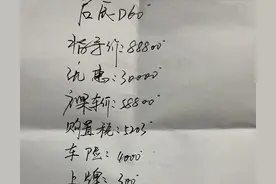 启辰D60
指导价:88800
优惠:30000
裸车价:58800
购置税:5203
车险:4000
上牌:300